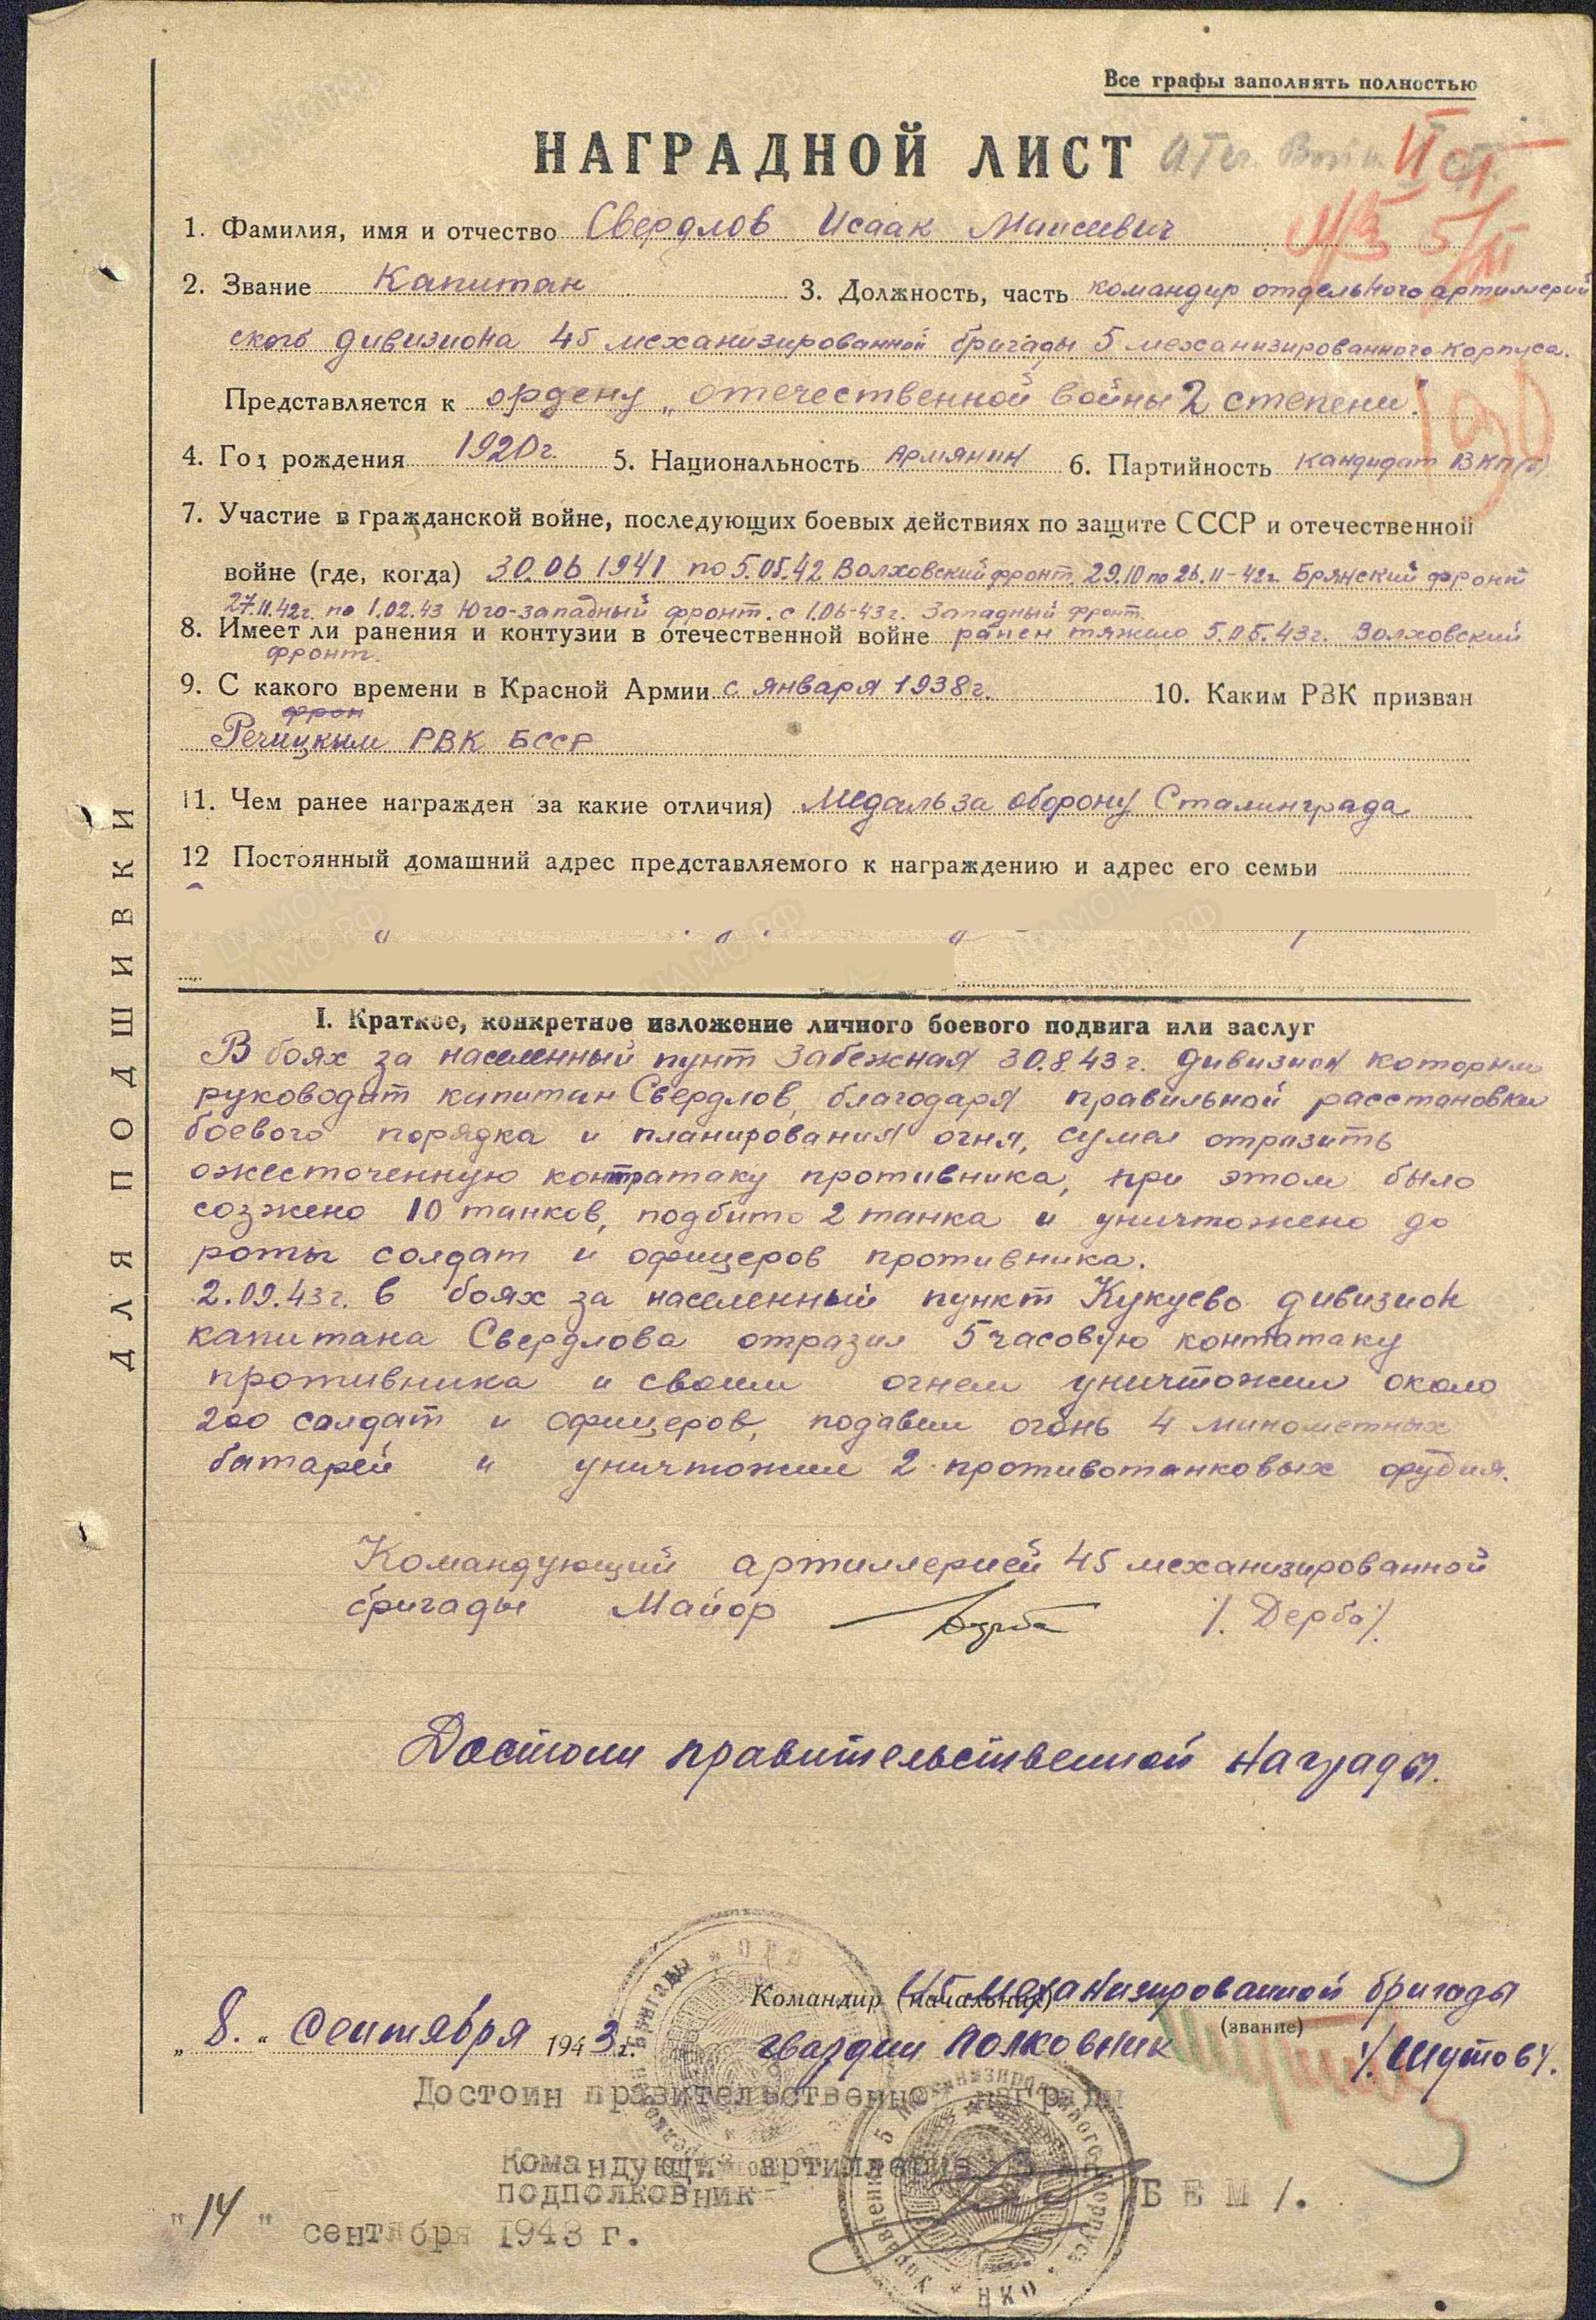 Все графы заполнять полностью
НАГРАДНОЙ ЛИСТ
1. Фамилия, имя и отчество Свердлов Исаак Маисеевич
2. Звание Капитан 3. Должность, часть командир отдельного артиллерий
ского дивизиона 45 механизированной бригады 5 механизированного корпуса.
Представляется к ордену „отечественной войны 2 степени".
4. Год рождения 1920г. 5. Национальность Армянин 6. Партийность Кандидат ВКП(б)
7. Участие в гражданской войне, последующих боевых действиях по защите СССР и отечественной
войне (где, когда) 30.06 1941 по 5.05.42 Волховский фронт 29.10 по 26.11-42г. Брянский фронт
27.11.42г. по 1.02.43 Юго-западный фронт. с 1.06-43г. Западный фронт.
8. Имеет ли ранения и контузии в отечественной войне ранен тяжело 5.05.43г. Волховский
фронт.
9. С какого времени в Красной Армии с января 1938г. 10. Каким РВК призван
фрон
Речицким РВК БССР
11. Чем ранее награжден за какие отличия) Медаль за оборону Сталинграда
12 Постоянный домашний адрес представляемого к награждению и адрес его семьи
I. Краткое, конкретное изложение личного боевого подвига или заслуг
В боях за населенный пунт Забежная 30.8.43г. дивизион которым
руководит капитан Свердлов, благодаря правильной расстановки
боевого порядка и планирования огня, сумел отразить
ожесточенную контратаку противника, при этом было
созжено 10 танков, подбито 2 танка и уничтожено до
роты солдат и офицеров противника.
2.09.43г. в боях за населенный пункт Кукуево дивизион
капитана Свердлова отразил 5 часовую контатаку
противника и своим огнем уничтожил около
200 солдат и офицеров, подавил огонь 4 минометных
батарей и уничтожил 2 противотанковых орудия.
Командующий артиллерией 45 механизированной
бригады Майор /. Дерба/.
Достоин правительственной награды.
Командир (начальник) 45 механизированной бригады
(звание)
„ 8. " Сентября 1943г. гвардии Полковник /Шутов/.
Достоин правительственной награды
Командующий артиллерией 5 МК
подполковник /БЕМ/.
"14" сентября 1943 г.
ДЛЯ ПОДШИВКИ